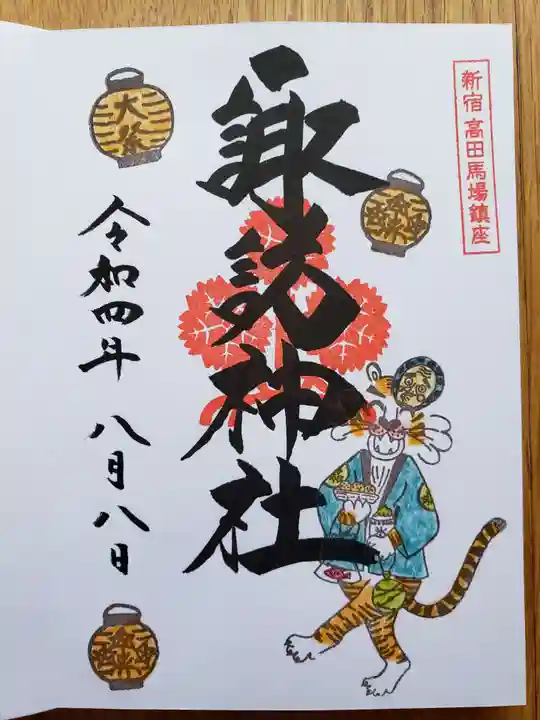 新宿高田馬場鎮座
諏訪神社
大祭
令和四年 八月八日